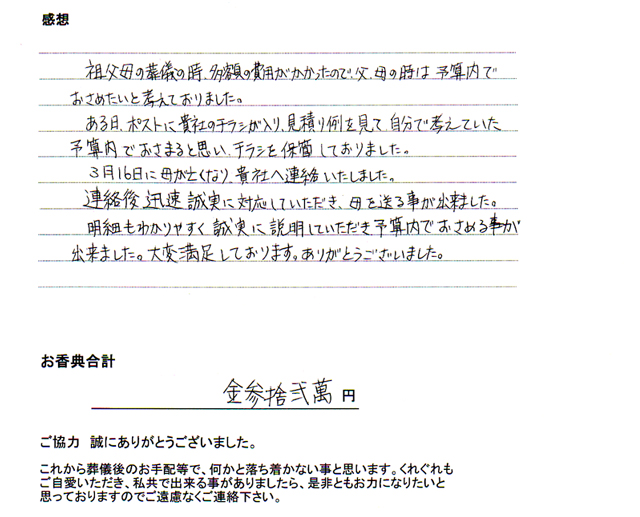 感想
祖父母の葬儀の時、多額の費用がかかったので、父、母の時は予算内で
おさめたいと考えておりました。
ある日、ポストに貴社のチラシが入り、見積り例を見て、自分で考えていた
予算内でおさまると思い、チラシを保管しておりました。
3月16日に母が亡くなり、貴社へ連絡いたしました。
連絡後、迅速誠実に対応していただき、母を送る事が出来ました。
明細もわかりやすく誠実に説明していただき予算内でおさめる事が
出来ました。大変満足しております。ありがとうございました。
お香典合計
金参拾弐萬 円
ご協力 誠にありがとうございました。
これから葬儀後のお手配等で、何かと落ち着かない事と思います。くれぐれも
ご自愛いただき、私共で出来る事がありましたら、是非ともお力になりたいと
思っておりますのでご遠慮なくご連絡下さい。